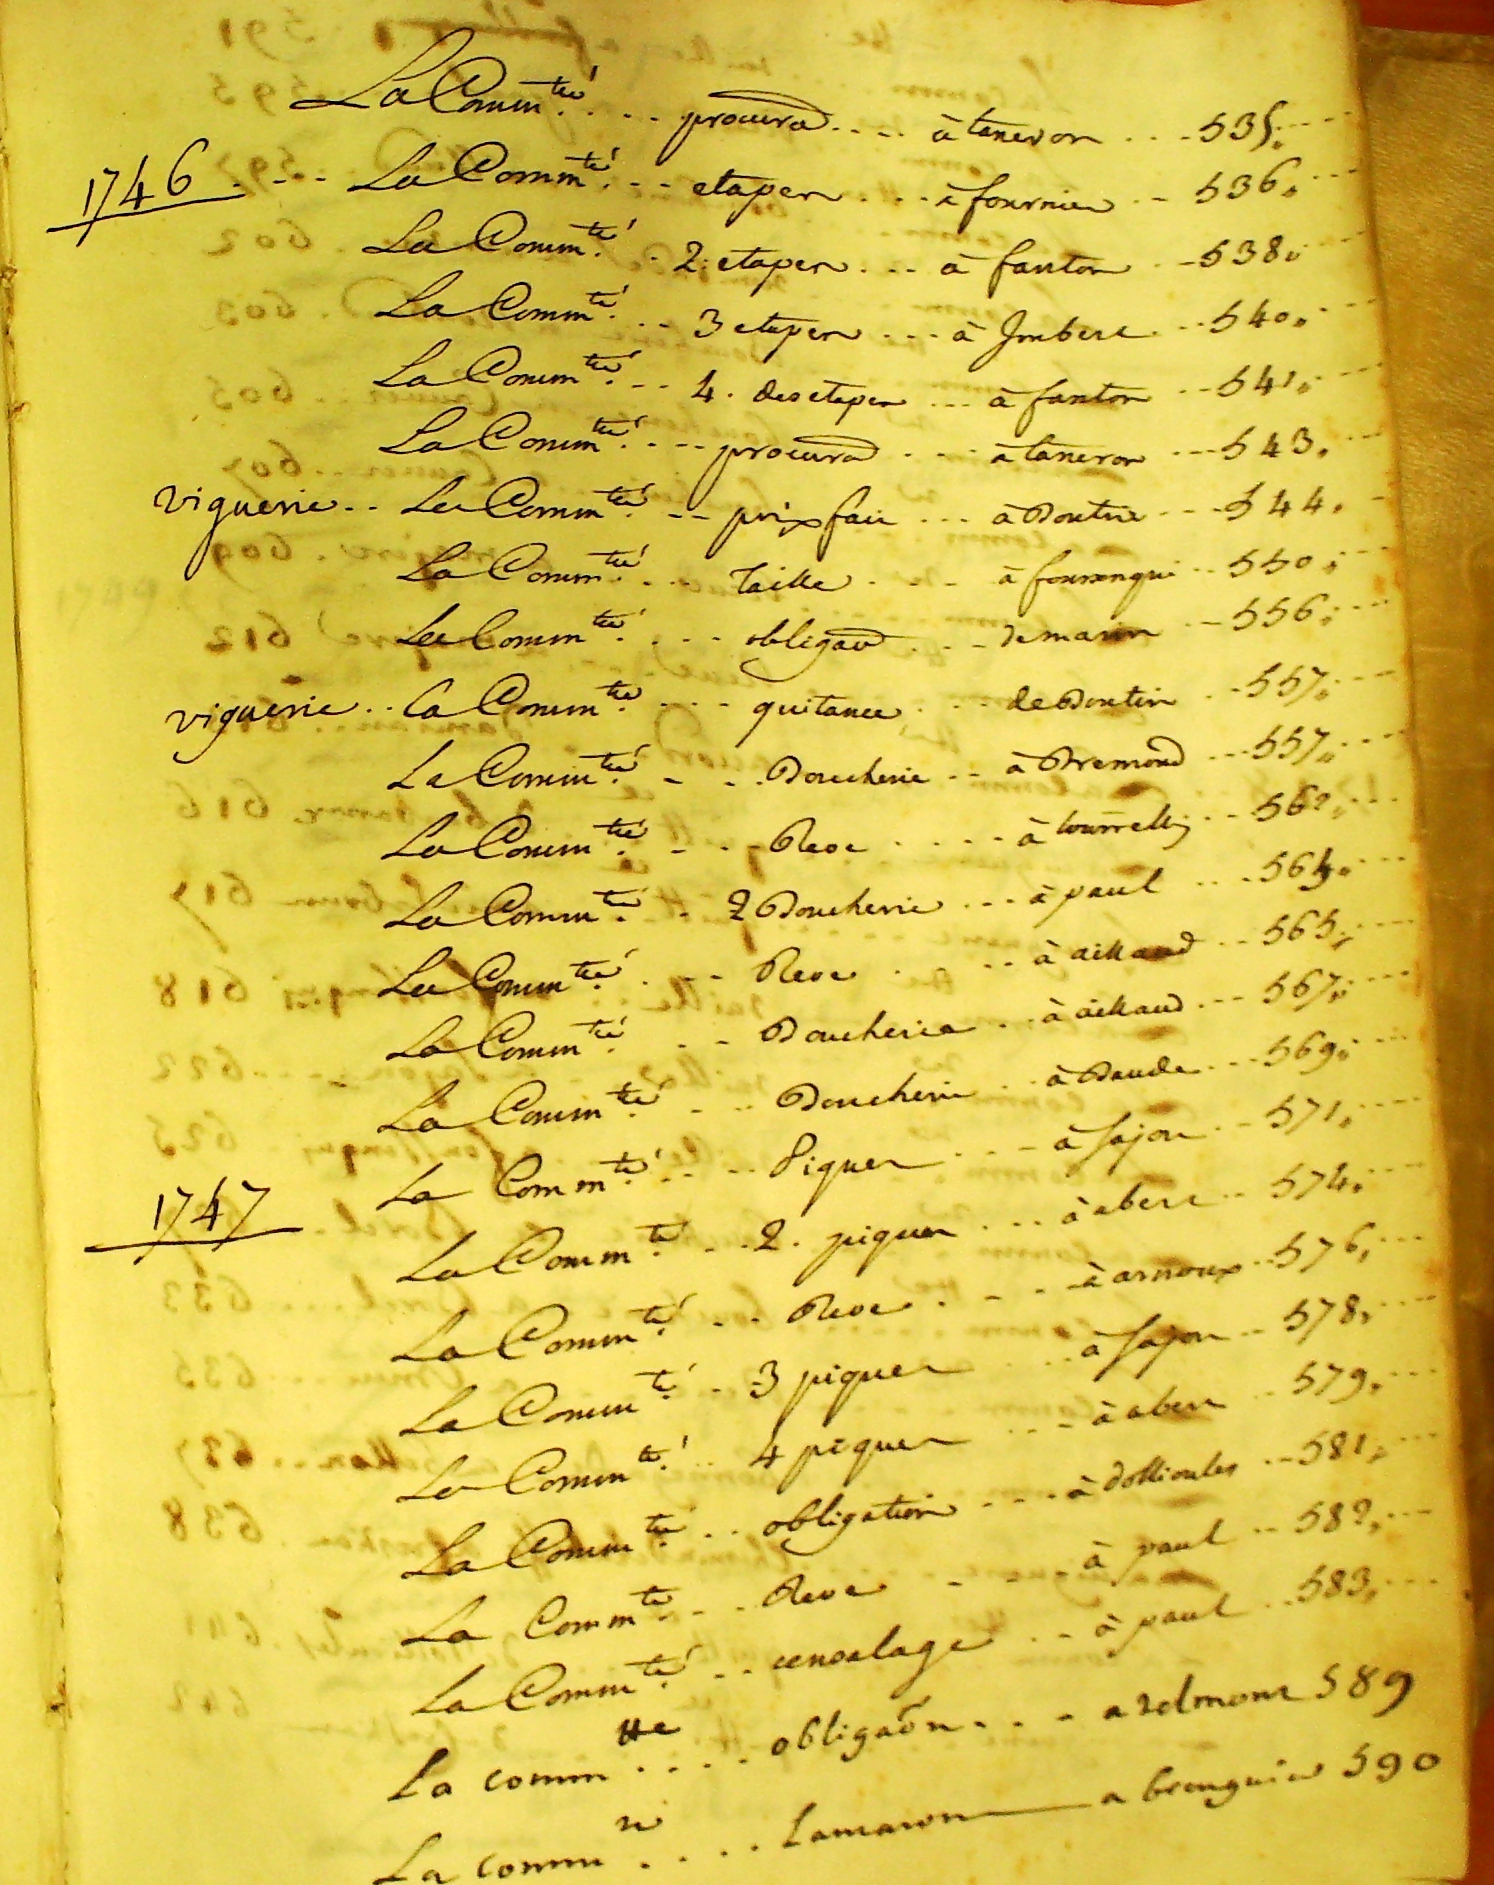 La Comm.té .... procura[ti]on .... à taneron ... 535.
1746 ... La Comm.té ... etapes ... à fournier .. 536.
La Comm.té . 2. etapes ... à fanton .. 538.
La Comm.té ... 3 etapes ... à Jmbert ... 540.
La Comm.té ... 4. des etapes ... à fanton ... 541.
La Comm.té .... procura[ti]on ... à taneron ... 543.
viguerie .. La Comm.té ... prixfait ... à Boutin ... 544.
La Comm.té ... taille ... à fourenqui .. 550.
La Comm.té .... obliga[ti]on ... de marin .. 556.
viguerie .. la Comm.té .... quitance ... de Boutin .. 557.
La Comm.té ... Boucherie .. à Bremond ... 557.
La Comm.té ... Reve .... à tourrelly .. 562.
La Comm.té .. 2 Boucherie ... à paul ... 564.
La Comm.té ... Reve .... à aillaud .. 565.
La Comm.té ... Boucherie .. à aillaud ... 567.
La Comm.té ... Boucherie .. à Daude ... 569.
La Comm.té ... Piquet ... à Jajou .. 571.
1747
La Comm.té ... 2. piquet ... à abert .. 574.
La Comm.té ... Reve ... à arnoux .. 576.
La Comm.té .. 3 piquet ... à Jajou .. 578.
La Comm.té .. 4 piquet ... à abert .. 579.
La Comm.té .. obligation .... à dollioules .. 581.
La Comm.té ... Reve .. à paul .. 582.
La Comm.té .. censalage .. à paul .. 583.
La comm tte .... obligaõn ... a 589
La comm .... a brenguier 590